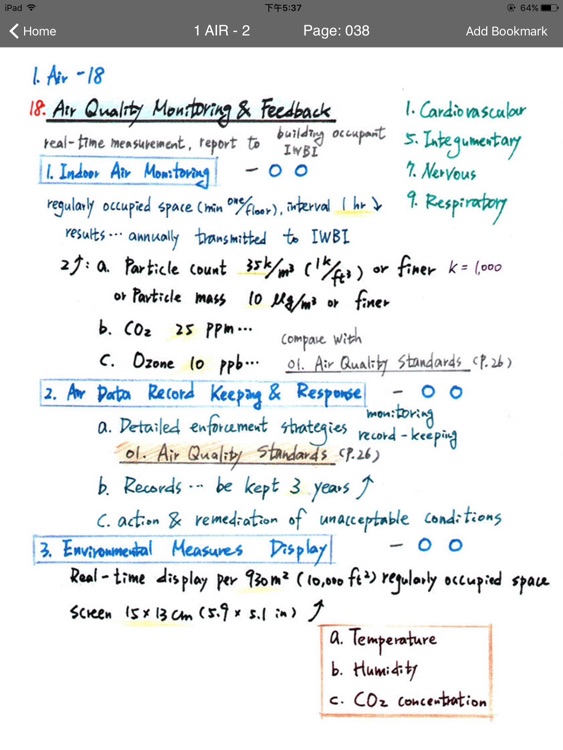 iPad 下午5:37 64%
Home 1 AIR - 2 Page: 038 Add Bookmark
1. Air -18
18. Air Quality Monitoring & Feedback
real-time measurement, report to building occupant IWBI
1. Cardiovascular
5. Integumentary
7. Nervous
9. Respiratory
1. Indoor Air Monitoring - O O
regularly occupied space (min one/floor), interval 1 hr ↓
results... annually transmitted to IWBI
2↑: a. Particle count 35k/m³ (1k/ft³) or finer k = 1,000
or Particle mass 10 μg/m³ or finer
b. CO2 25 ppm...
c. Ozone 10 ppb...
compare with
01. Air Quality Standards (P.26)
2. Air Data Record Keeping & Response - O O
a. Detailed enforcement strategies monitoring record-keeping
01. Air Quality Standards (P.26)
b. Records... be kept 3 years ↑
c. action & remediation of unacceptable conditions
3. Environmental Measures Display - O O
Real-time display per 930 m² (10,000 ft²) regularly occupied space
screen 15 x 13 cm (5.9 x 5.1 in) ↑
a. Temperature
b. Humidity
c. CO2 concentration